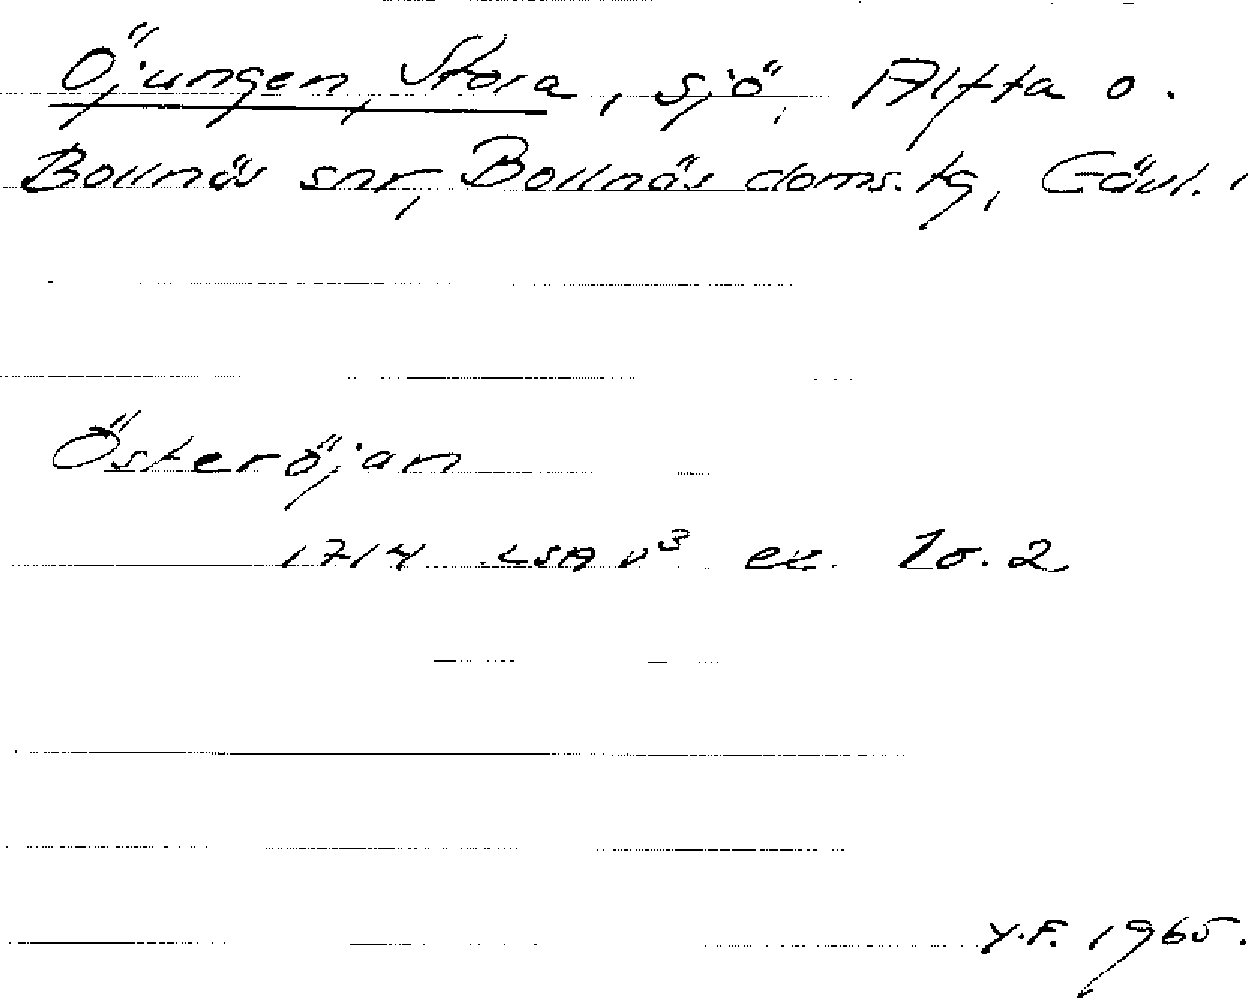 Öjungen, Stora, sjö, Alfta o.
Bollnäs snr, Bollnäs doms. tg, Gävl. l
Österöjan
1714 LSA v³ ek. 10.2
Y.F. 1965.